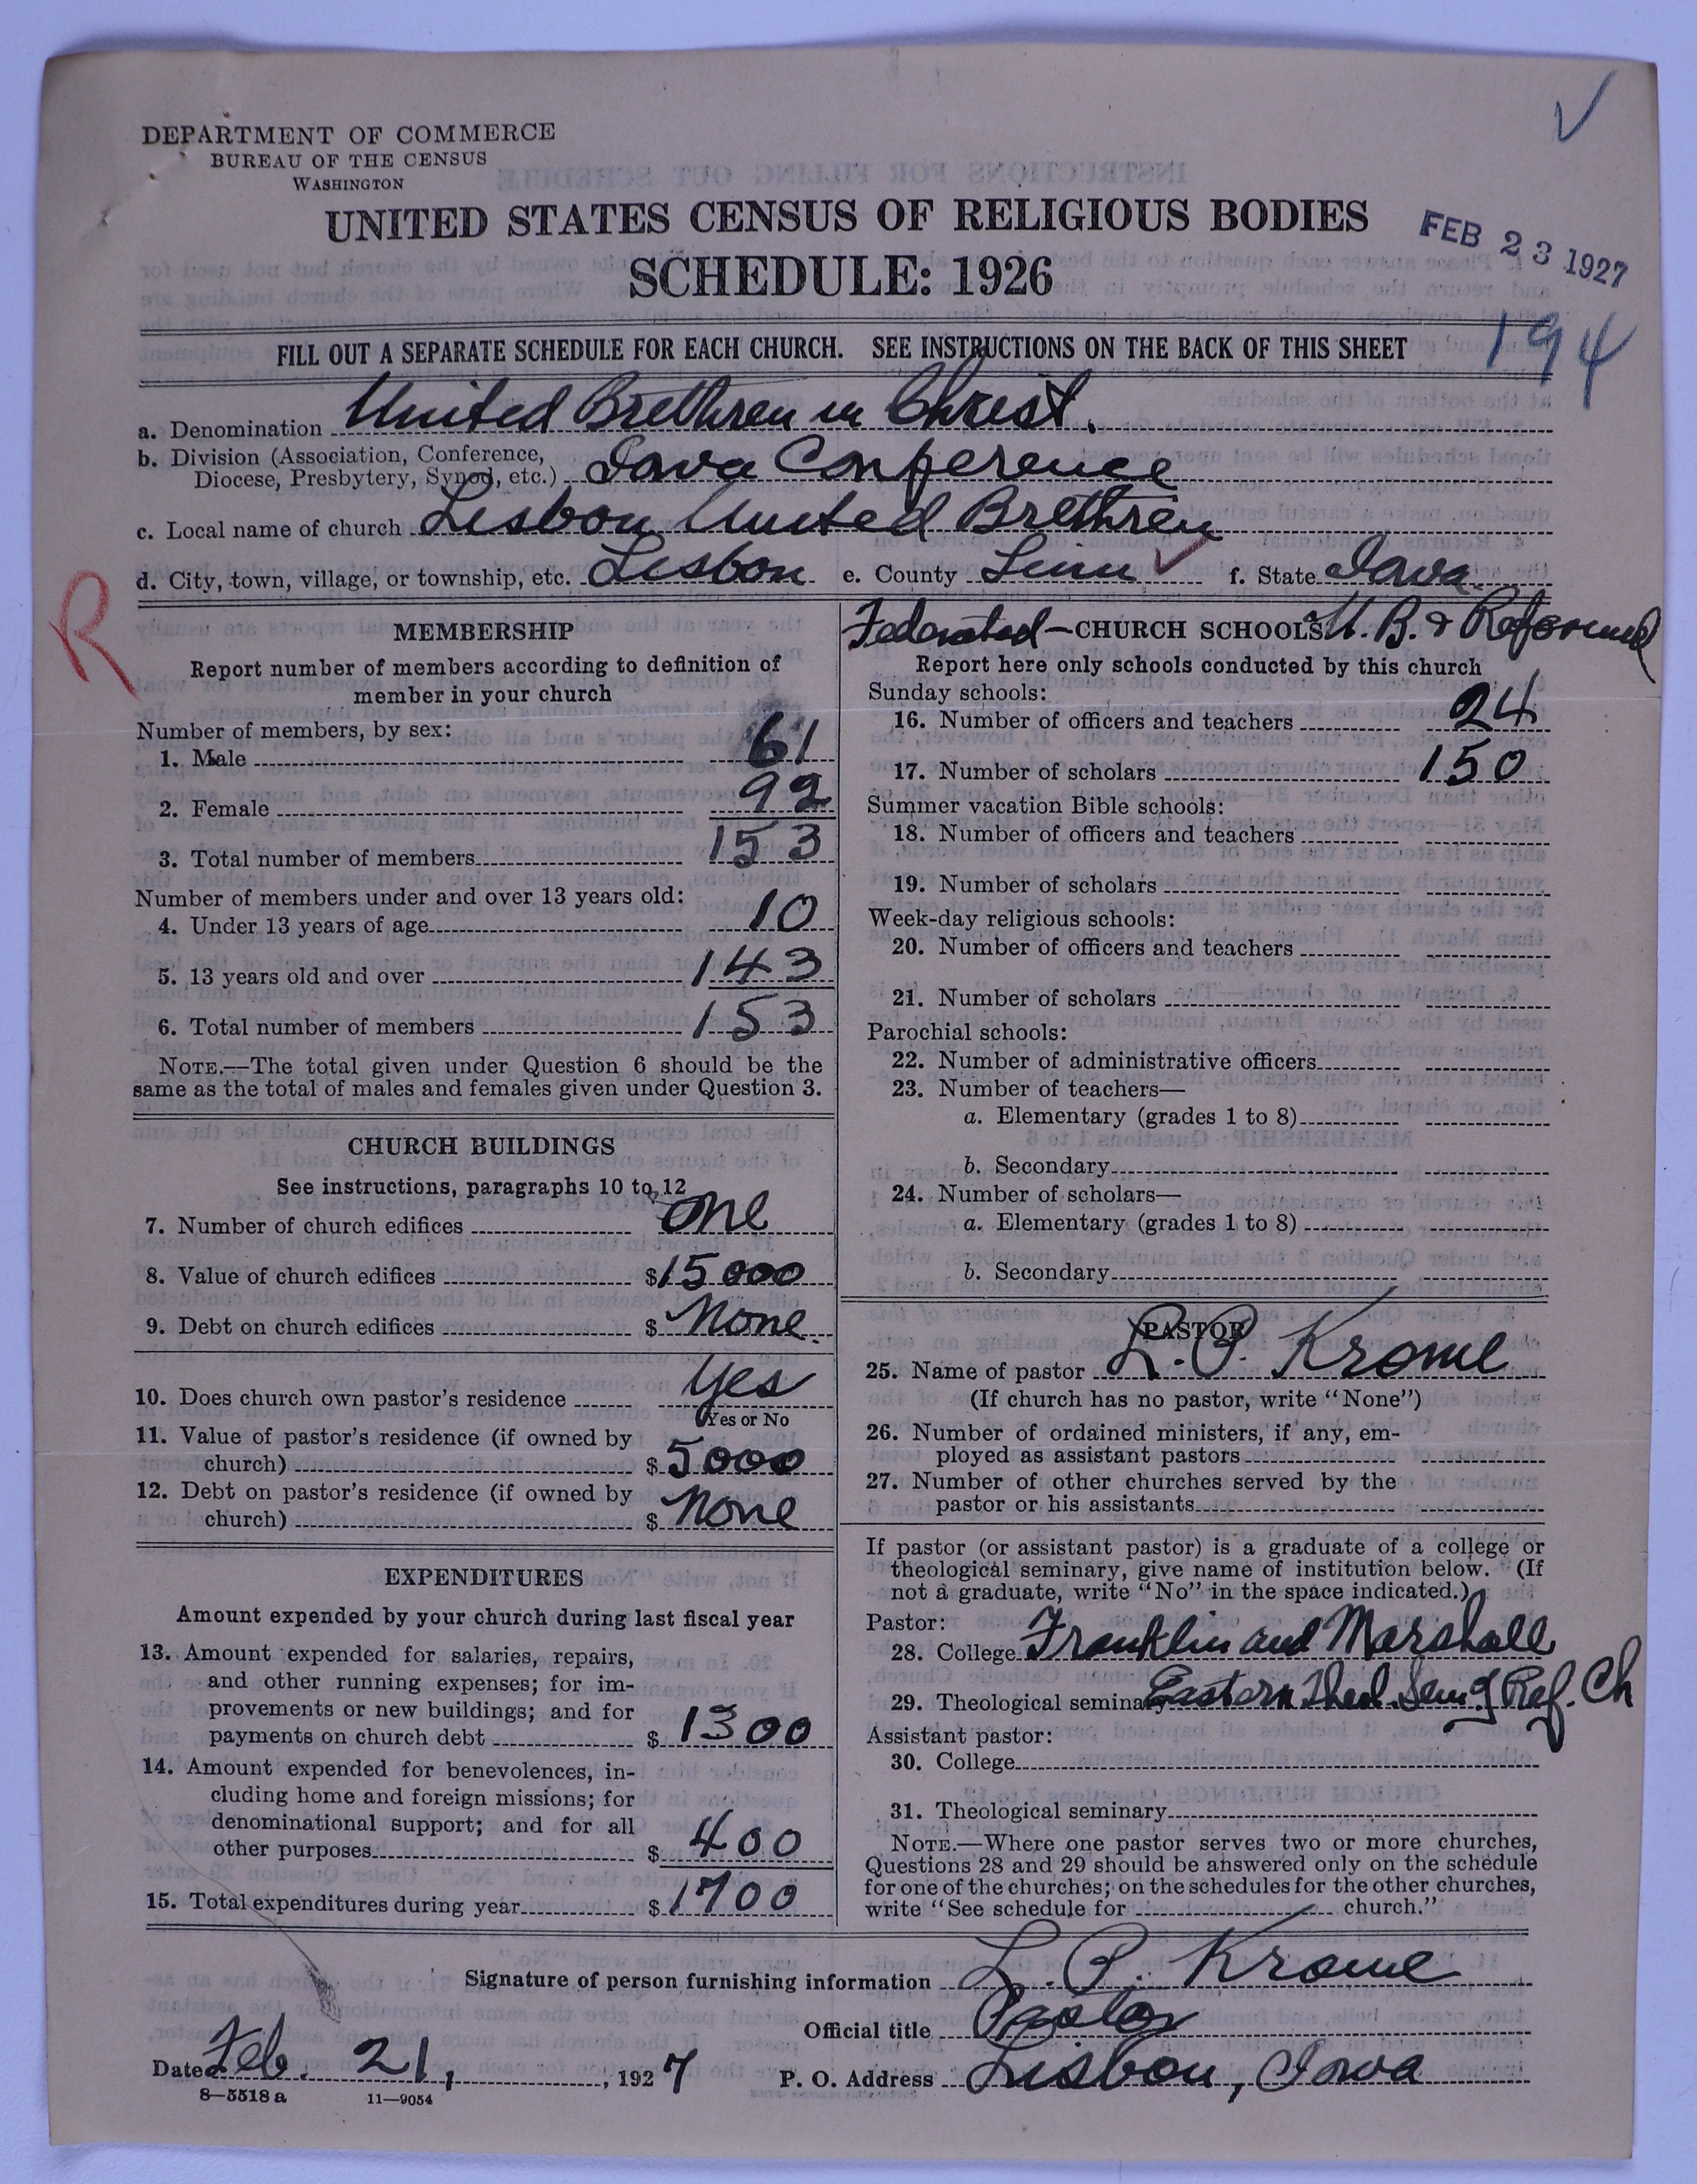 DEPARTMENT OF COMMERCE
BUREAU OF THE CENSUS
WASHINGTON
UNITED STATES CENSUS OF RELIGIOUS BODIES
SCHEDULE: 1926
FEB 23 1927
194
FILL OUT A SEPARATE SCHEDULE FOR EACH CHURCH. SEE INSTRUCTIONS ON THE BACK OF THIS SHEET
a. Denomination United Brethren in Christ.
b. Division (Association, Conference, Diocese, Presbytery, Synod, etc.) Iowa Conference
c. Local name of church Lisbon United Brethren
d. City, town, village, or township, etc. Lisbon e. County Linn f. State Iowa
R
MEMBERSHIP
Report number of members according to definition of
member in your church
Number of members, by sex:
1. Male 61
2. Female 92
3. Total number of members 153
Number of members under and over 13 years old:
4. Under 13 years of age 10
5. 13 years old and over 143
6. Total number of members 153
NOTE.—The total given under Question 6 should be the
same as the total of males and females given under Question 3.
CHURCH BUILDINGS
See instructions, paragraphs 10 to 12
7. Number of church edifices one
8. Value of church edifices $15000
9. Debt on church edifices $ None.
10. Does church own pastor's residence Yes
Yes or No
11. Value of pastor's residence (if owned by
church) $ 5000
12. Debt on pastor's residence (if owned by
church) $ None
EXPENDITURES
Amount expended by your church during last fiscal year
13. Amount expended for salaries, repairs,
and other running expenses; for im-
provements or new buildings; and for
payments on church debt $ 1300
14. Amount expended for benevolences, in-
cluding home and foreign missions; for
denominational support; and for all
other purposes $ 400
15. Total expenditures during year $ 1700
Federated — CHURCH SCHOOLS U. B. & Reformed
Report here only schools conducted by this church
Sunday schools:
16. Number of officers and teachers 24
17. Number of scholars 150
Summer vacation Bible schools:
18. Number of officers and teachers
19. Number of scholars
Week-day religious schools:
20. Number of officers and teachers
21. Number of scholars
Parochial schools:
22. Number of administrative officers
23. Number of teachers—
a. Elementary (grades 1 to 8)
b. Secondary
24. Number of scholars—
a. Elementary (grades 1 to 8)
b. Secondary
PASTOR
25. Name of pastor L. P. Krome
(If church has no pastor, write "None")
26. Number of ordained ministers, if any, em-
ployed as assistant pastors
27. Number of other churches served by the
pastor or his assistants
If pastor (or assistant pastor) is a graduate of a college or
theological seminary, give name of institution below. (If
not a graduate, write "No" in the space indicated.)
Pastor:
28. College Franklin and Marshall
29. Theological seminary Eastern Theol. Sem of Ref. Ch
Assistant pastor:
30. College
31. Theological seminary
NOTE.—Where one pastor serves two or more churches,
Questions 28 and 29 should be answered only on the schedule
for one of the churches; on the schedules for the other churches,
write "See schedule for church."
Signature of person furnishing information L. P. Krome
Official title Pastor
Date Feb. 21, , 1927 P. O. Address Lisbon, Iowa
8—5518 a 11—9054